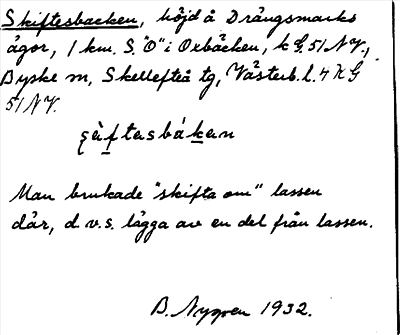 Skiftesbacken, höjd å Drängsmarks
ägor, 1 km. S. "O" i Oxbäcken, k G. 51 NV.,
Byske sn, Skellefteå tg, Västerb. l. 4 KG
51 NV.
ʂìftasbákan
Man brukade "skifta om" lassen
där, d.v.s. lägga av en del från lassen.
B. Nygren 1932.